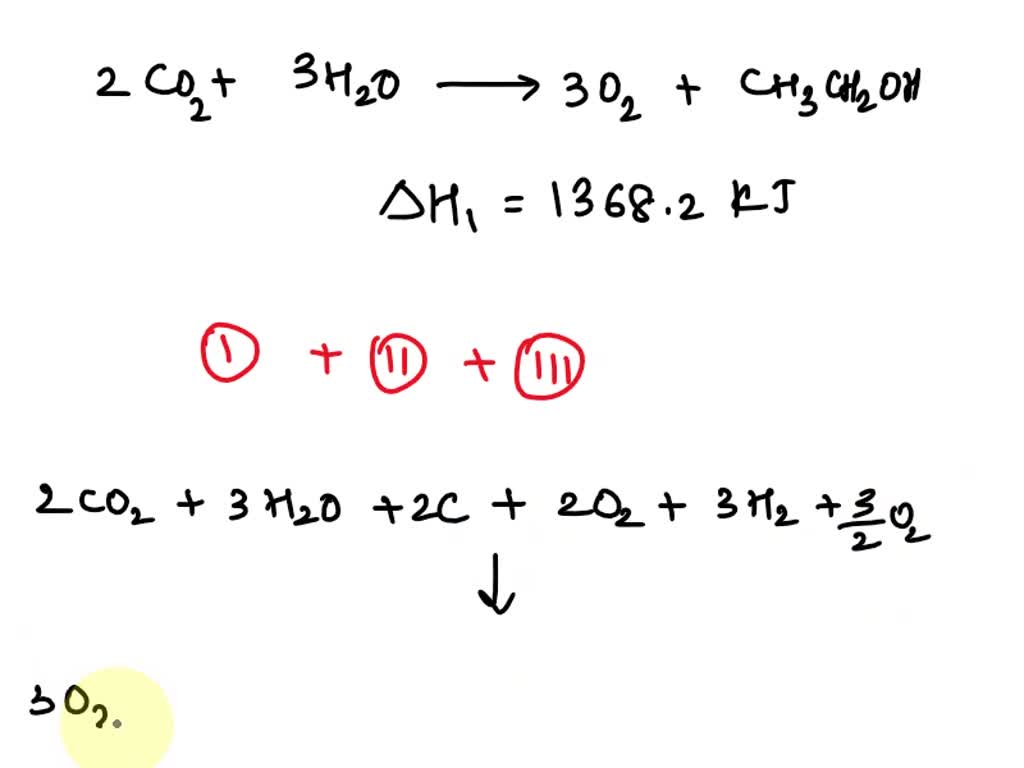 2CO₂ + 3H₂O ⟶ 3O₂ + CH₃CH₂OH
ΔH₁ = 1368.2 KJ
I + II + III
2CO₂ + 3H₂O + 2C + 2O₂ + 3H₂ + 3/2 O₂
↓
3O₂